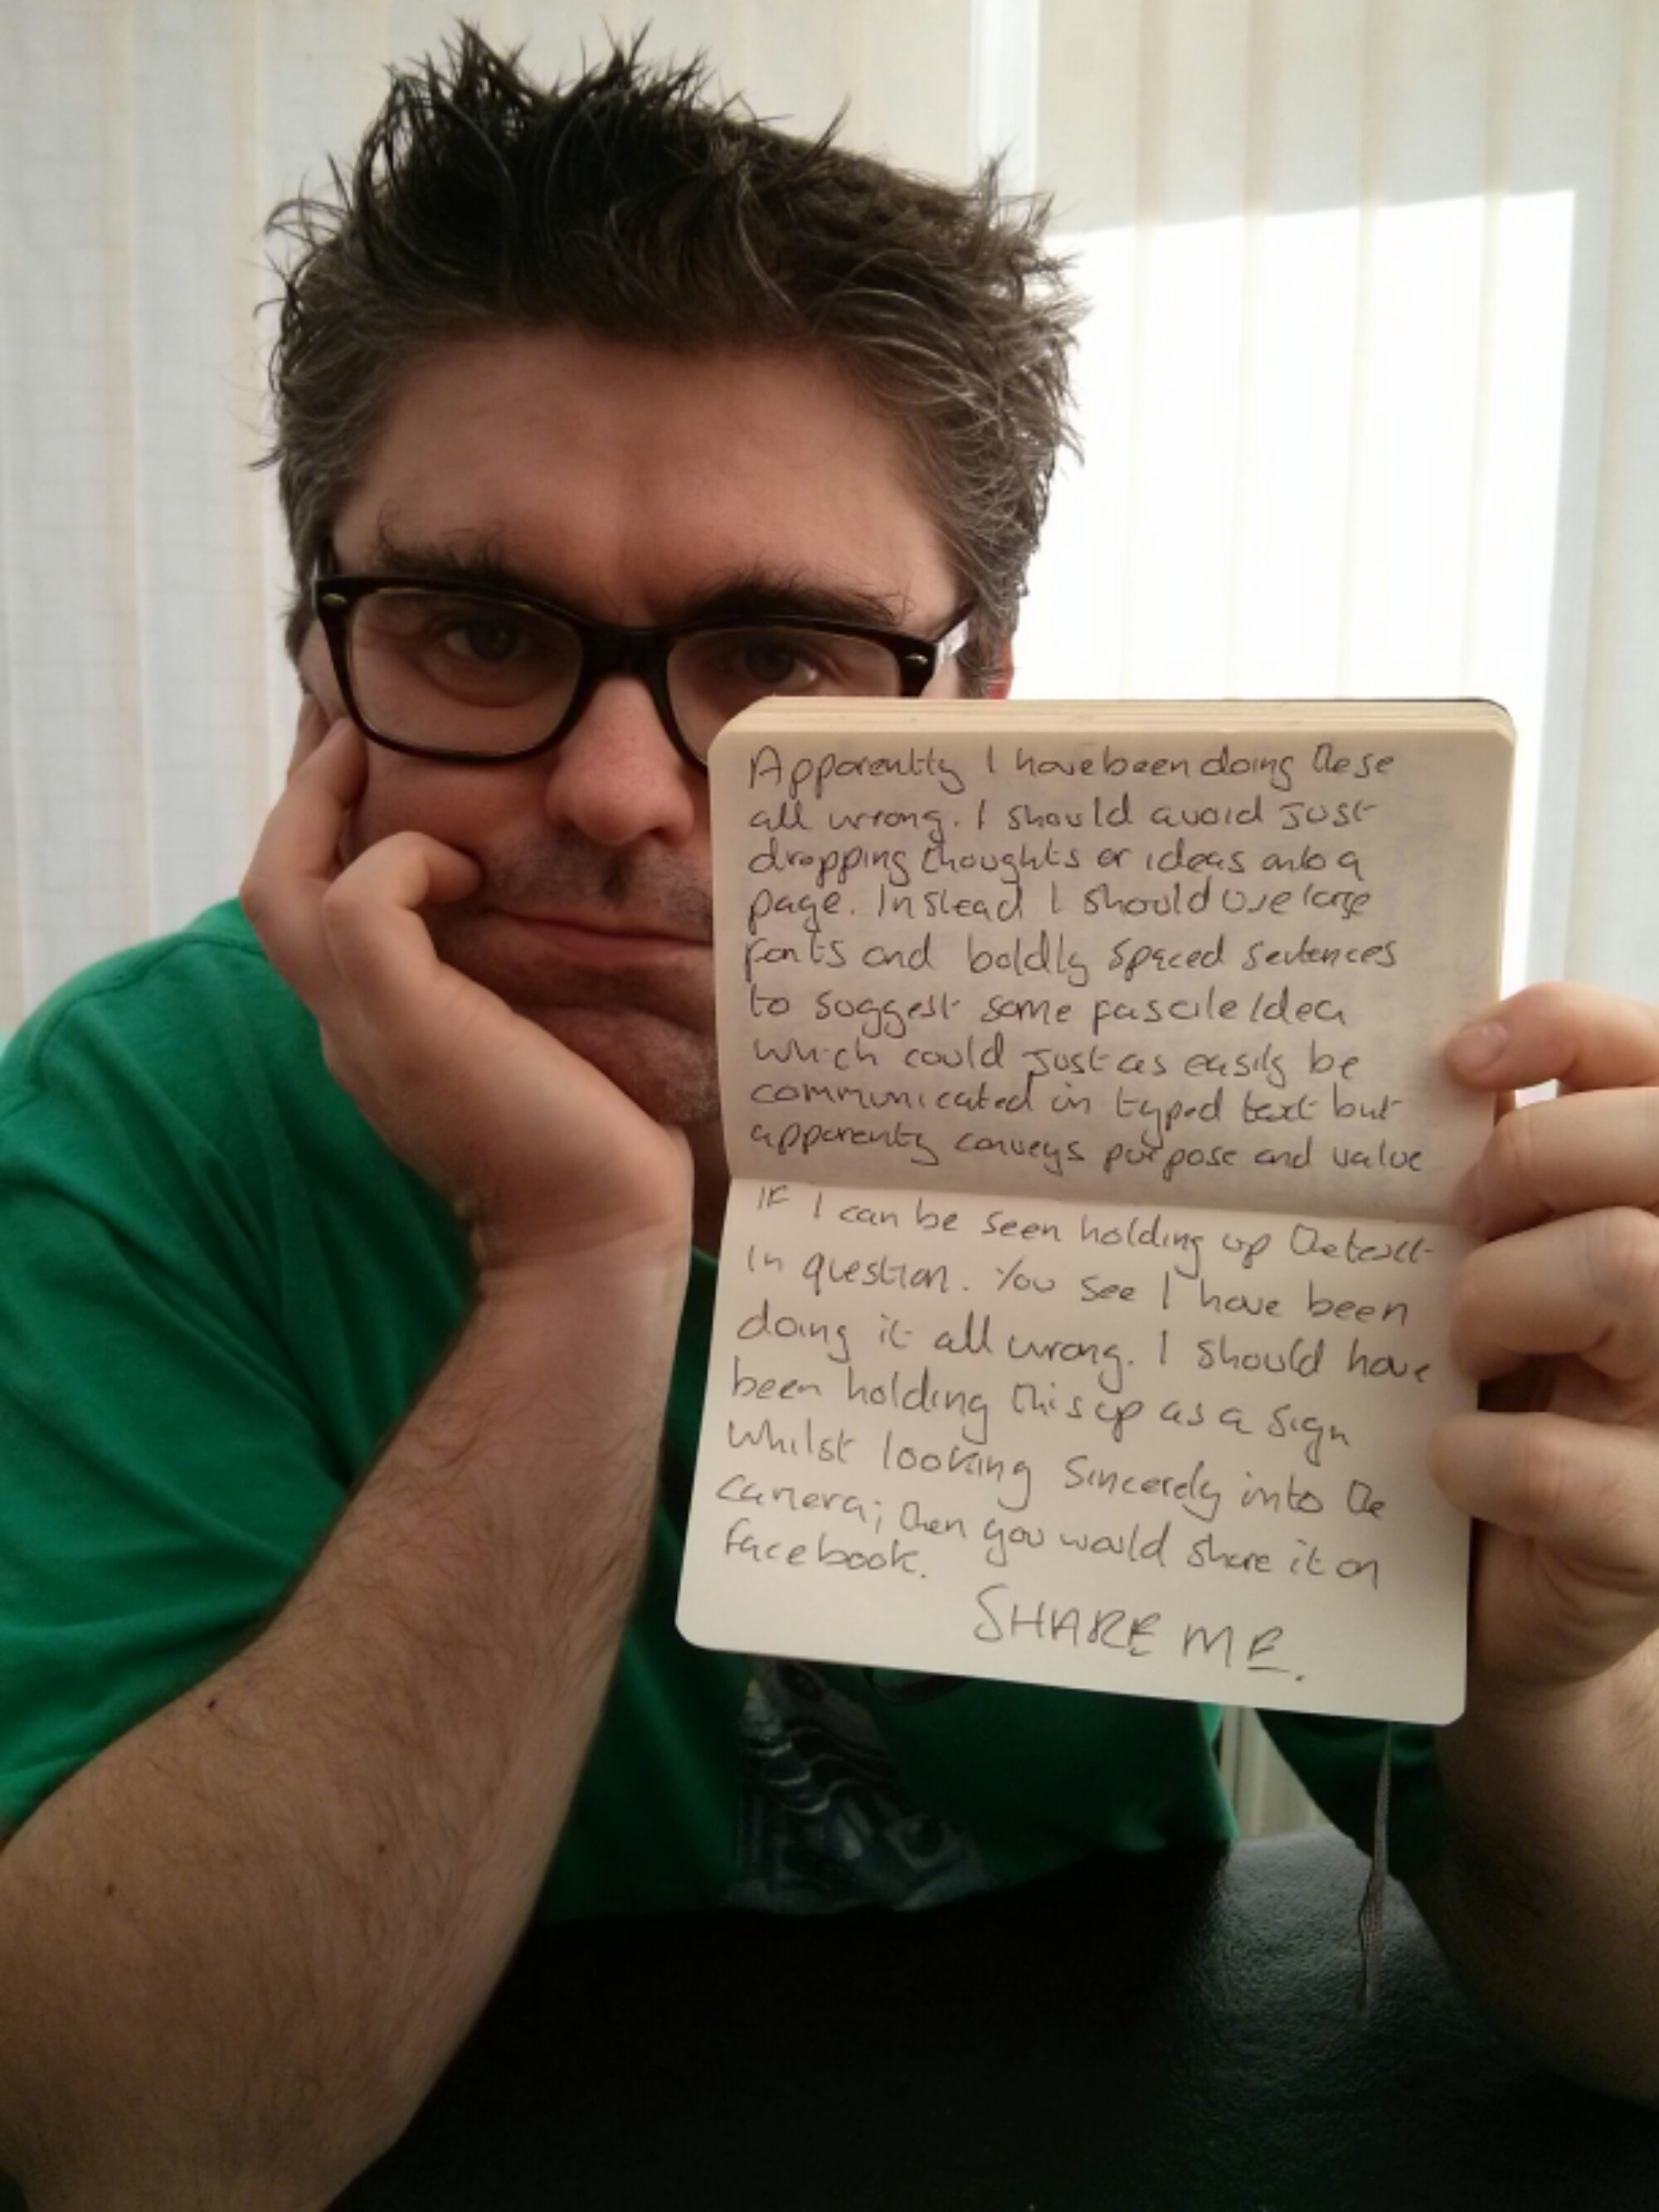 Apparently I have been doing these
all wrong. I should avoid just
dropping thoughts or ideas onto a
page. Instead I should use large
fonts and boldly spaced sentences
to suggest some fascile idea
which could just as easily be
communicated in typed text but
apparently conveys purpose and value
If I can be seen holding up the text
in question. You see I have been
doing it all wrong. I should have
been holding this up as a sign
whilst looking sincerely into the
camera; then you would share it on
facebook.
SHARE ME.